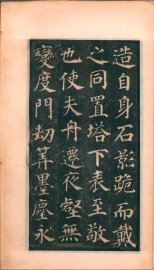 造自身石影跪而戴
之同置塔下表至敬
也使夫舟遷夜壑無
變度門劫筭墨塵永